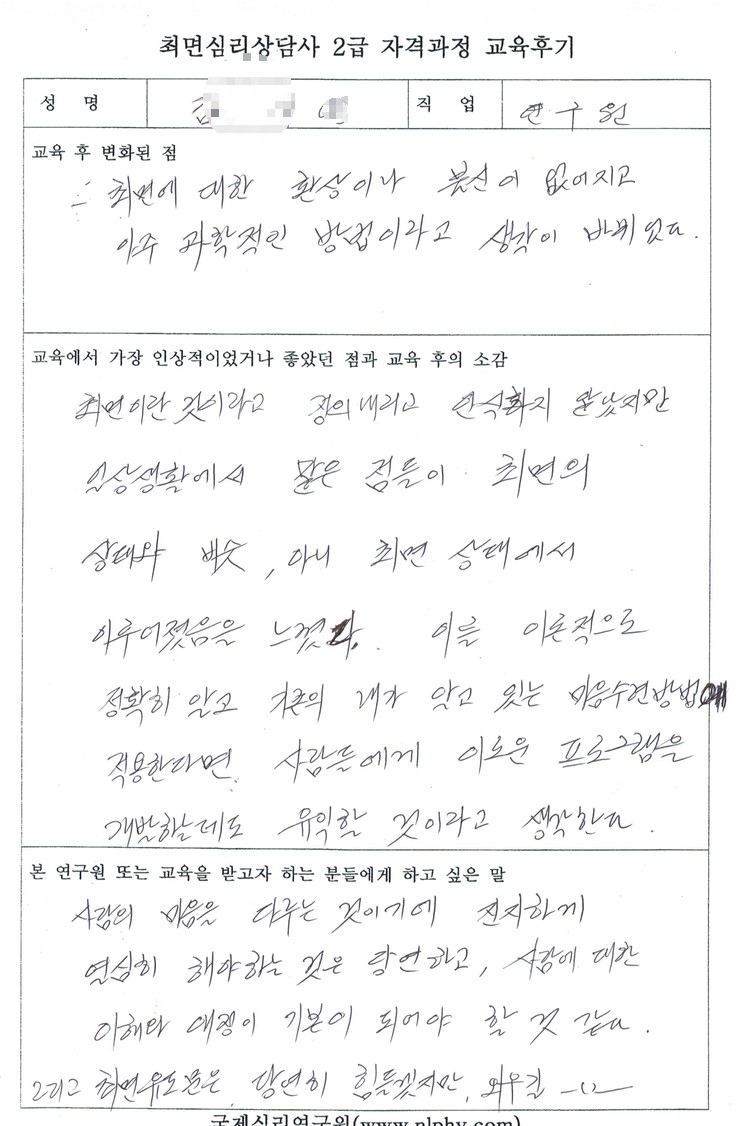 최면심리상담사 2급 자격과정 교육후기
성 명
직 업 연구원
교육 후 변화된 점
최면에 대한 환상이나 불신이 없어지고
아주 과학적인 방법이라고 생각이 바뀌었다.
교육에서 가장 인상적이었거나 좋았던 점과 교육 후의 소감
최면이란 것이라고 정의내리고 인식화지 않았지만
일상생활에서 많은 점들이 최면의
상태와 비슷, 아니 최면 상태에서
이루어졌음을 느꼈다. 이를 이론적으로
정확히 알고 기존의 내가 알고 있는 마음수련방법에
적용한다면 사람들에게 이로운 프로그램을
개발하는데도 유익할 것이라고 생각한다.
본 연구원 또는 교육을 받고자 하는 분들에게 하고 싶은 말
사람의 마음을 다루는 것이기에 진지하게
열심히 해야하는 것은 당연하고, 사람에 대한
이해와 애정이 기본이 되어야 할 것 같다.
그리고 최면유도문은 당연히 힘들겠지만, 외우길
국제심리연구원(www.nlphy.com)